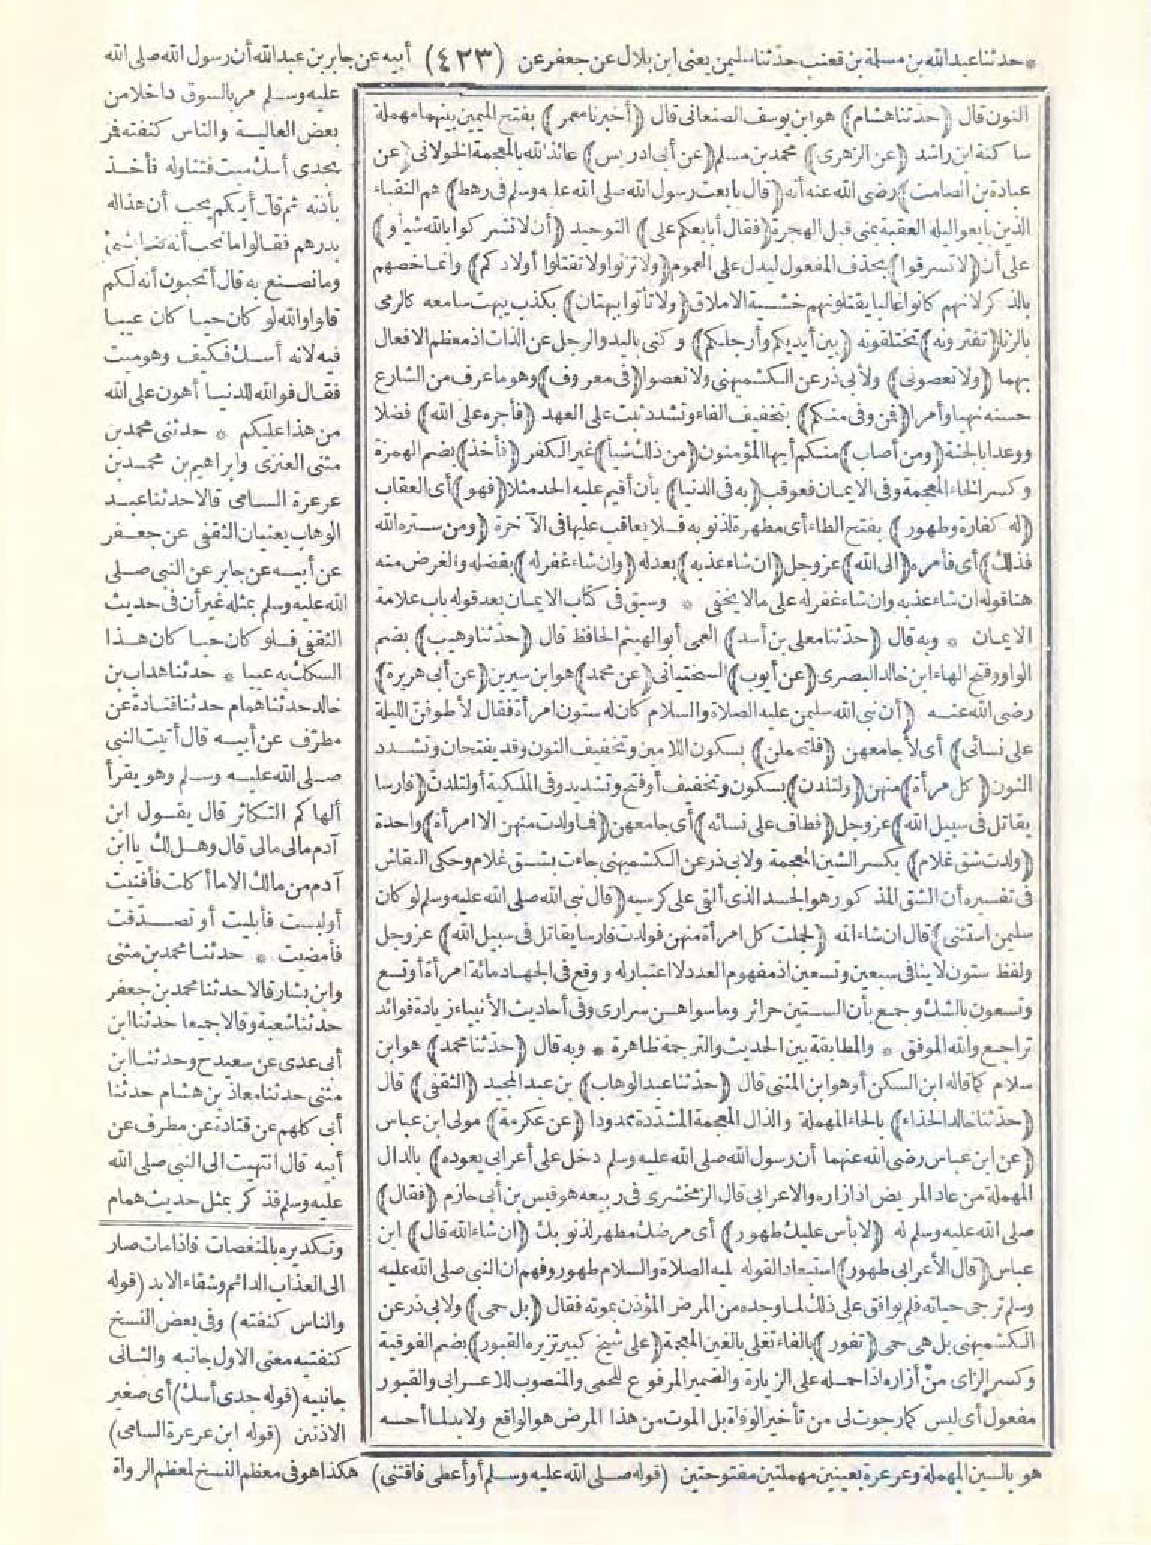 * حدثنا عبد الله بن مسلمة بن قعنب حدثنا سليمن يعنى ابن بلال عن جعفر عن (٤٢٣) أبيه عن جابر بن عبد الله أن رسول الله صلى الله
عليه وسلم مر بالسوق داخلا من
بعض العالية والناس كنفته فمر
بجدى أسك ميت فتناوله فأخذ
بأذنه ثم قال أيكم يحب أن هذا له
بدرهم فقالوا ما نحب أنه لنا بشئ
وما نصنع به قال أتحبون أنه لكم
قالوا والله لو كان حيا كان عيبا
فيه لانه أسك فكيف وهو ميت
فقال فوالله للدنيا أهون على الله
من هذا عليكم * حدثنى محمد بن
مثنى العنزى وابراهيم بن محمد بن
عرعرة السامى قالا حدثنا عبد
الوهاب يعنيان الثقفى عن جعفر
عن أبيه عن جابر عن النبى صلى
الله عليه وسلم بمثله غير أن فى حديث
الثقفى فلو كان حيا كان هذا
السكك به عيبا * حدثنا هداب بن
خالد حدثنا همام حدثنا قتادة عن
مطرّف عن أبيه قال أتيت النبى
صلى الله عليه وسلم وهو يقرأ
ألهاكم التكاثر قال يقول ابن
آدم مالى مالى قال وهل لك يا ابن
آدم من مالك الا ما أكلت فأفنيت
أو لبست فأبليت أو تصدّقت
فأمضيت * حدثنا محمد بن مثنى
وابن بشار قالا حدثنا محمد بن جعفر
حدثنا شعبة وقالا جميعا حدثنا ابن
أبى عدى عن سعيد ح وحدثنا ابن
مثنى حدثنا معاذ بن هشام حدثنا
أبى كلهم عن قتادة عن مطرف عن
أبيه قال انتهيت الى النبى صلى الله
عليه وسلم فذكر بمثل حديث همام
وتكديره بالمنغصات فاذا مات صار
الى العذاب الدائم وشقاء الابد (قوله
والناس كنفته) وفى بعض النسخ
كنفتيه معنى الاول جانبه والثانى
جانبيه (قوله جدى أسك) أى صغير
الاذنين (قوله ابن عرعرة السامى)
النون قال (حدّثنا هشام) هو ابن يوسف الصنعانى قال (أخبرنا معمر) بفتح الميمين بينهما مهملة
ساكنة ابن راشد (عن الزهرى) محمد بن مسلم (عن أبى ادريس) عائذ الله بالمعجمة الخولانى (عن
عبادة بن الصامت) رضى الله عنه أنه (قال بايعت رسول الله صلى الله عليه وسلم فى رهط) هم النقباء
الذين بايعوا ليلة العقبة بمنى قبل الهجرة (فقال أبايعكم على) التوحيد (أن لا تشركوا بالله شيأ و)
على أن (لا تسرقوا) بحذف المفعول ليدل على العموم (ولا تزنوا ولا تقتلوا أولادكم) وانما خصهم
بالذكر لانهم كانوا غالبا يقتلونهم خشية الاملاق (ولا تأتوا ببهتان) بكذب يبهت سامعه كالرمى
بالزنا (تفترونه) تختلقونه (بين أيديكم وأرجلكم) وكنى باليد والرجل عن الذات اذ معظم الافعال
بهما (ولا تعصونى) ولأبى ذر عن الكشميهنى ولا تعصوا (فى معروف) وهو ما عرف من الشارع
حسنه نهيا وأمرا (فمن وفى منكم) بتخفيف الفاء وتشدد ثبت على العهد (فأجره على الله) فضلا
ووعدا بالجنة (ومن أصاب) منكم أيها المؤمنون (من ذلك شيأ) غير الكفر (فأخذ) بضم الهمزة
وكسر الخاء المعجمة وفى الايمان فعوقب (به فى الدنيا) بأن أقيم عليه الحد مثلا (فهو) أى العقاب
(له كفارة وطهور) بفتح الطاء أى مطهرة لذنوبه فلا يعاقب عليها فى الآخرة (ومن ستره الله
فذلك) أى فأمره (الى الله) عز وجل (ان شاء عذبه) بعدله (وان شاء غفر له) بفضله والغرض منه
هنا قوله ان شاء عذبه وان شاء غفر له على ما لا يخفى * وسبق فى كتاب الايمان بعد قوله باب علامة
الايمان * وبه قال (حدّثنا معلى بن أسد) العمى أبو الهيثم الحافظ قال (حدّثنا وهيب) بضم
الواو وفتح الهاء ابن خالد البصرى (عن أيوب) السختيانى (عن محمد) هو ابن سيرين (عن أبى هريرة)
رضى الله عنه (أن نبى الله سليمن عليه الصلاة والسلام كان له ستون امرأة فقال لأطوفنّ الليلة
على نسائى) أى لأجامعهن (فلتحملن) بسكون اللامين وتخفيف النون وقد يفتحان وتشدد
النون (كل امرأة) منهن (ولتلدن) بسكون وتخفيف أو فتح وتشديد وفى الملكية أو لتلدن (فارسا
يقاتل فى سبيل الله) عز وجل (فطاف على نسائه) أى جامعهن (فما ولدت منهن الا امرأة) واحدة
(ولدت شق غلام) بكسر الشين المعجمة ولابى ذر عن الكشميهنى جاءت بشق غلام وحكى النقاش
فى تفسيره أن الشق المذكور هو الجسد الذى ألقى على كرسيه (قال نبى الله صلى الله عليه وسلم لو كان
سليمن استثنى) قال ان شاء الله (لحملت كل امرأة منهن فولدت فارسا يقاتل فى سبيل الله) عز وجل
ولفظ ستون لا ينافى سبعين وتسعين اذ مفهوم العدد لا اعتبار له ووقع فى الجهاد مائة امرأة أو تسع
وتسعون بالشك وجمع بأن الستين حرائر وما سواهن سرارى وفى أحاديث الأنبياء زيادة فوائد
تراجع والله الموفق * والمطابقة بين الحديث والترجمة ظاهرة * وبه قال (حدّثنا محمد) هو ابن
سلام كما قاله ابن السكن أو هو ابن المثنى قال (حدّثنا عبد الوهاب) بن عبد المجيد (الثقفى) قال
(حدّثنا خالد الحذاء) بالحاء المهملة والذال المعجمة المشدّدة ممدودا (عن عكرمة) مولى ابن عباس
(عن ابن عباس رضى الله عنهما أن رسول الله صلى الله عليه وسلم دخل على أعرابى يعوده) بالدال
المهملة من عاد المريض اذا زاره والاعرابى قال الزمخشرى فى ربيعه هو قيس بن أبى حازم (فقال)
صلى الله عليه وسلم له (لا بأس عليك طهور) أى مرضك مطهر لذنوبك (ان شاء الله قال) ابن
عباس (قال الأعرابى طهور) استبعادا لقوله عليه الصلاة والسلام طهور وفهم ان النبى صلى الله عليه
وسلم ترجى حياته فلم يوافق على ذلك لما وجده من المرض المؤذن بموته فقال (بل حمى) ولابى ذر عن
الكشميهنى بل هى حمى (تفور) بالفاء تغلى بالغين المعجمة (على شيخ كبير تزيره القبور) بضم الفوقية
وكسر الزاى من أزاره اذا حمله على الزيارة والضمير المرفوع للحمى والمنصوب للاعرابى والقبور
مفعول أى ليس كما رجوت لى من تأخير الوفاة بل الموت من هذا المرض هو الواقع ولا بد لما أحسه
هو بالسين المهملة وعرعرة بعينين مهملتين مفتوحتين (قوله صلى الله عليه وسلم أو أعطى فاقتنى) هكذا هو فى معظم النسخ لمعظم الرواة